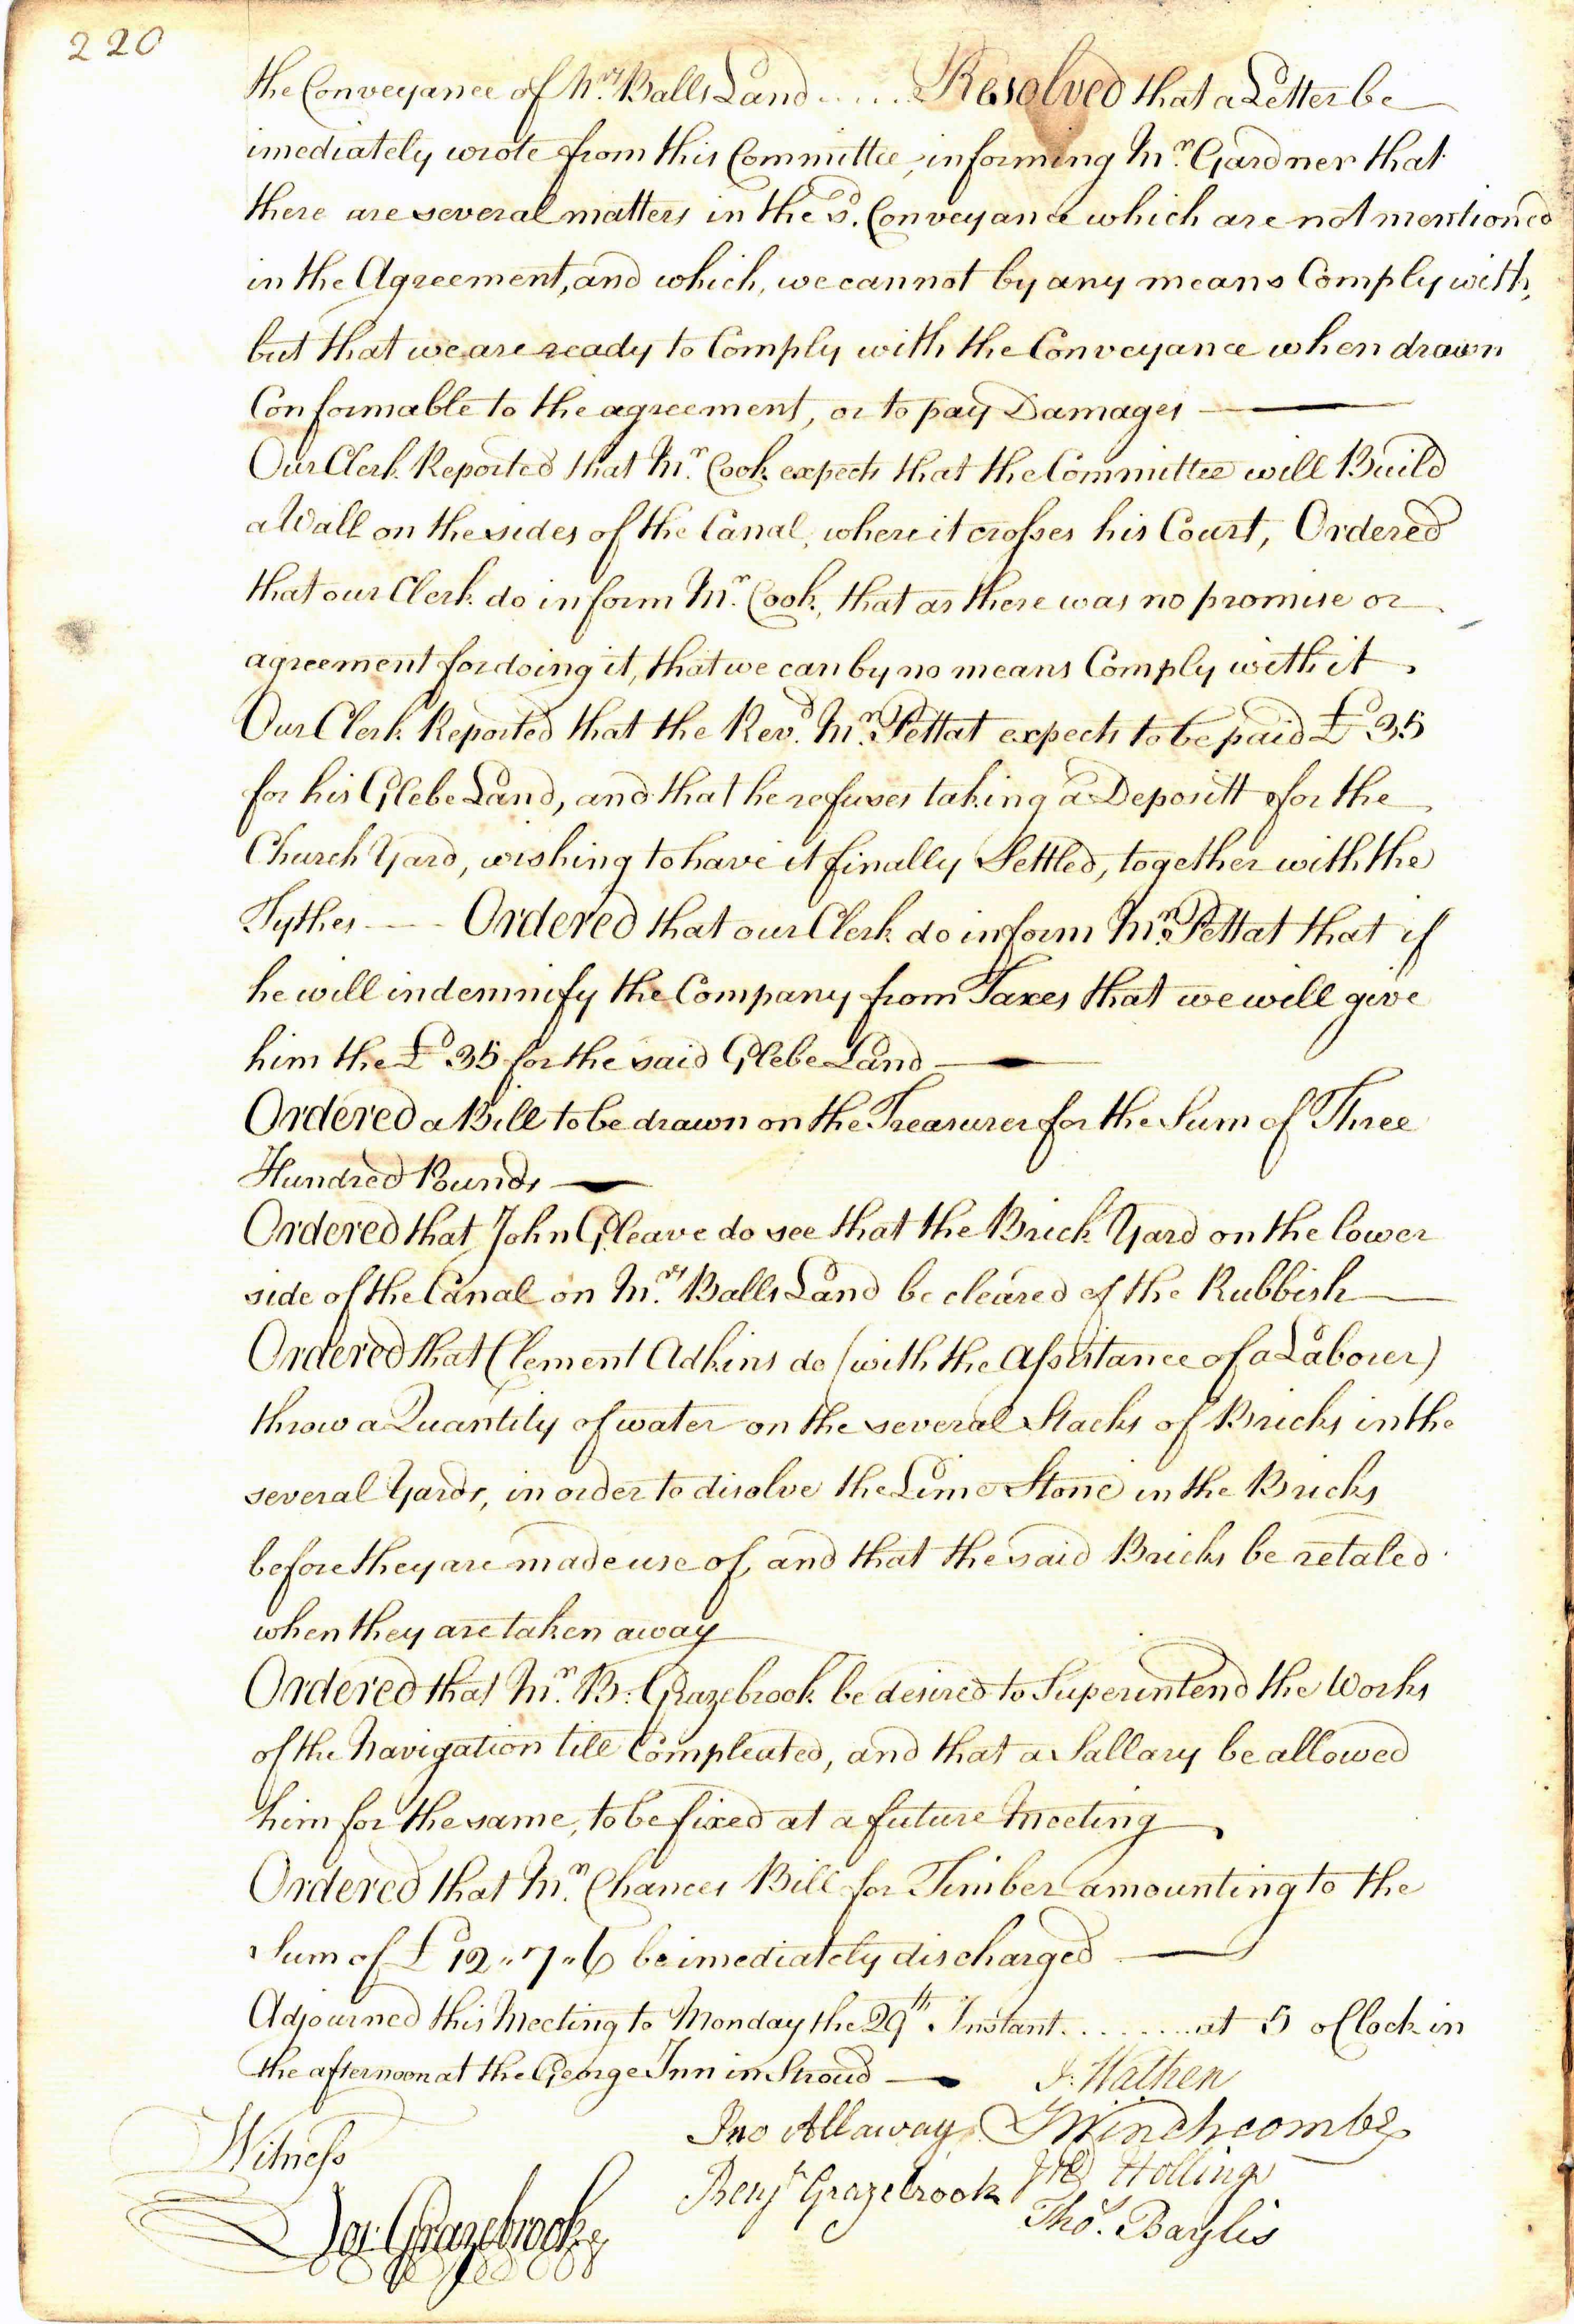 220
the Conveyance of Mrs. Balls Land ..... Resolved that a Letter be
imediately wrote from this Committee, informing Mr. Gardner that
there are several matters in the sd. Conveyance which are not mentioned
in the Agreement, and which, we cannot by any means Comply with,
but that we are ready to Comply with the Conveyance when drawn
Conformable to the agreement, or to pay Damages —
Our Clerk Reported that Mr. Cook expects that the Committee will Build
a Wall on the sides of the Canal, where it crosses his Court, Ordered
that our Clerk do inform Mr. Cook, that as there was no promise or
agreement for doing it, that we can by no means Comply with it.
Our Clerk Reported that the Revd. Mr. Pettat expects to be paid £35
for his Glebe Land, and that he refuses taking a Depositt for the
Church Yard, wishing to have it finally Settled, together with the
Tythes — Ordered that our Clerk do inform Mr. Pettat that if
he will indemnify the Company from Taxes that we will give
him the £35 for the said Glebe Land —
Ordered a Bill to be drawn on the Treasurer for the Sum of Three
Hundred Pounds —
Ordered that John Gleave do see that the Brick Yard on the lower
side of the Canal on Mrs. Balls Land be cleared of the Rubbish —
Ordered that Clement Adkins do (with the Assistance of a Laborer)
throw a Quantity of water on the several Stacks of Bricks in the
several Yards, in order to disolve the Lime Stone in the Bricks
before they are made use of, and that the said Bricks be retaled
when they are taken away
Ordered that Mr. B: Grazebrook be desired to Superintend the Works
of the Navigation till Compleated, and that a Sallary be allowed
him for the same, to be fixed at a future Meeting.
Ordered that Mr. Chances Bill for Timber amounting to the
Sum of £12"7"6 be imediately discharged —
Adjourned this Meeting to Monday the 29th. Instant ......... at 5 oClock in
the afternoon at the George Inn in Stroud —
J: Wathen
Jno Allaway Winchcombe
Witness
Benjn Grazebrook Wd Hollings
Thos. Baylis
Jos: Grazebrook